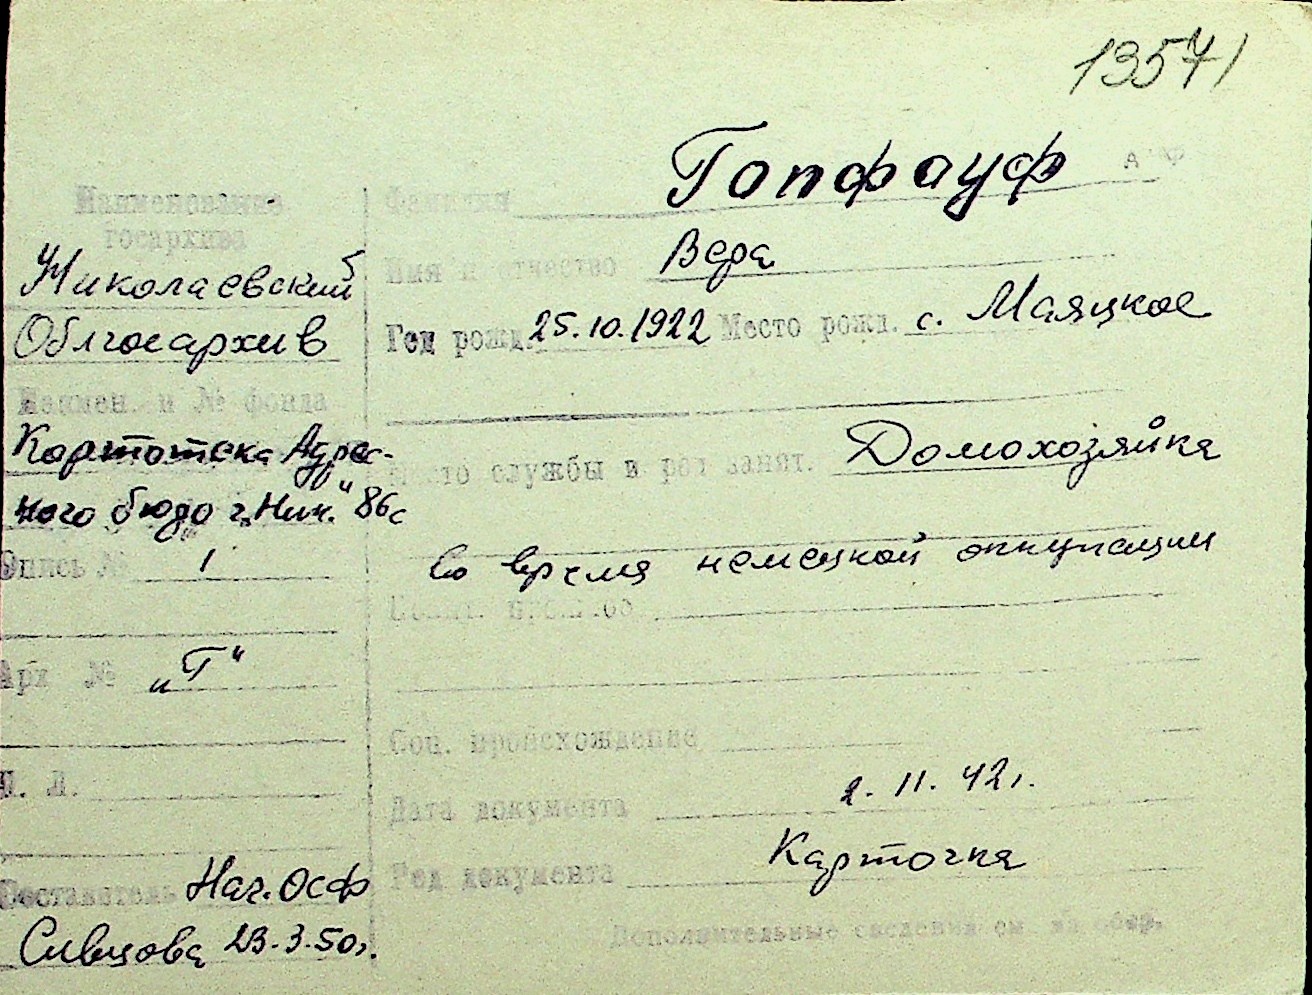 13571
Наименование
госархива
Николаевский
Облгосархив
Наимен. и № фонда
Картотека Адрес-
ного бюро г. Ник." 86с
Опись № 1
Арх № "Г"
Л. Л.
Составитель Нач. ОСФ
Сивцова 23.3.50г.
Фамилия Гопфауф
Имя и отчество Вера
Год рожд. 25.10.1922 Место рожд. с. Маяцкое
Место службы и род занят. Домохозяйка
во время немецкой оккупации
Соц. происхождение
Дата документа 2.11.42г.
Род документа Карточка
Дополнительные сведения см. на обор.